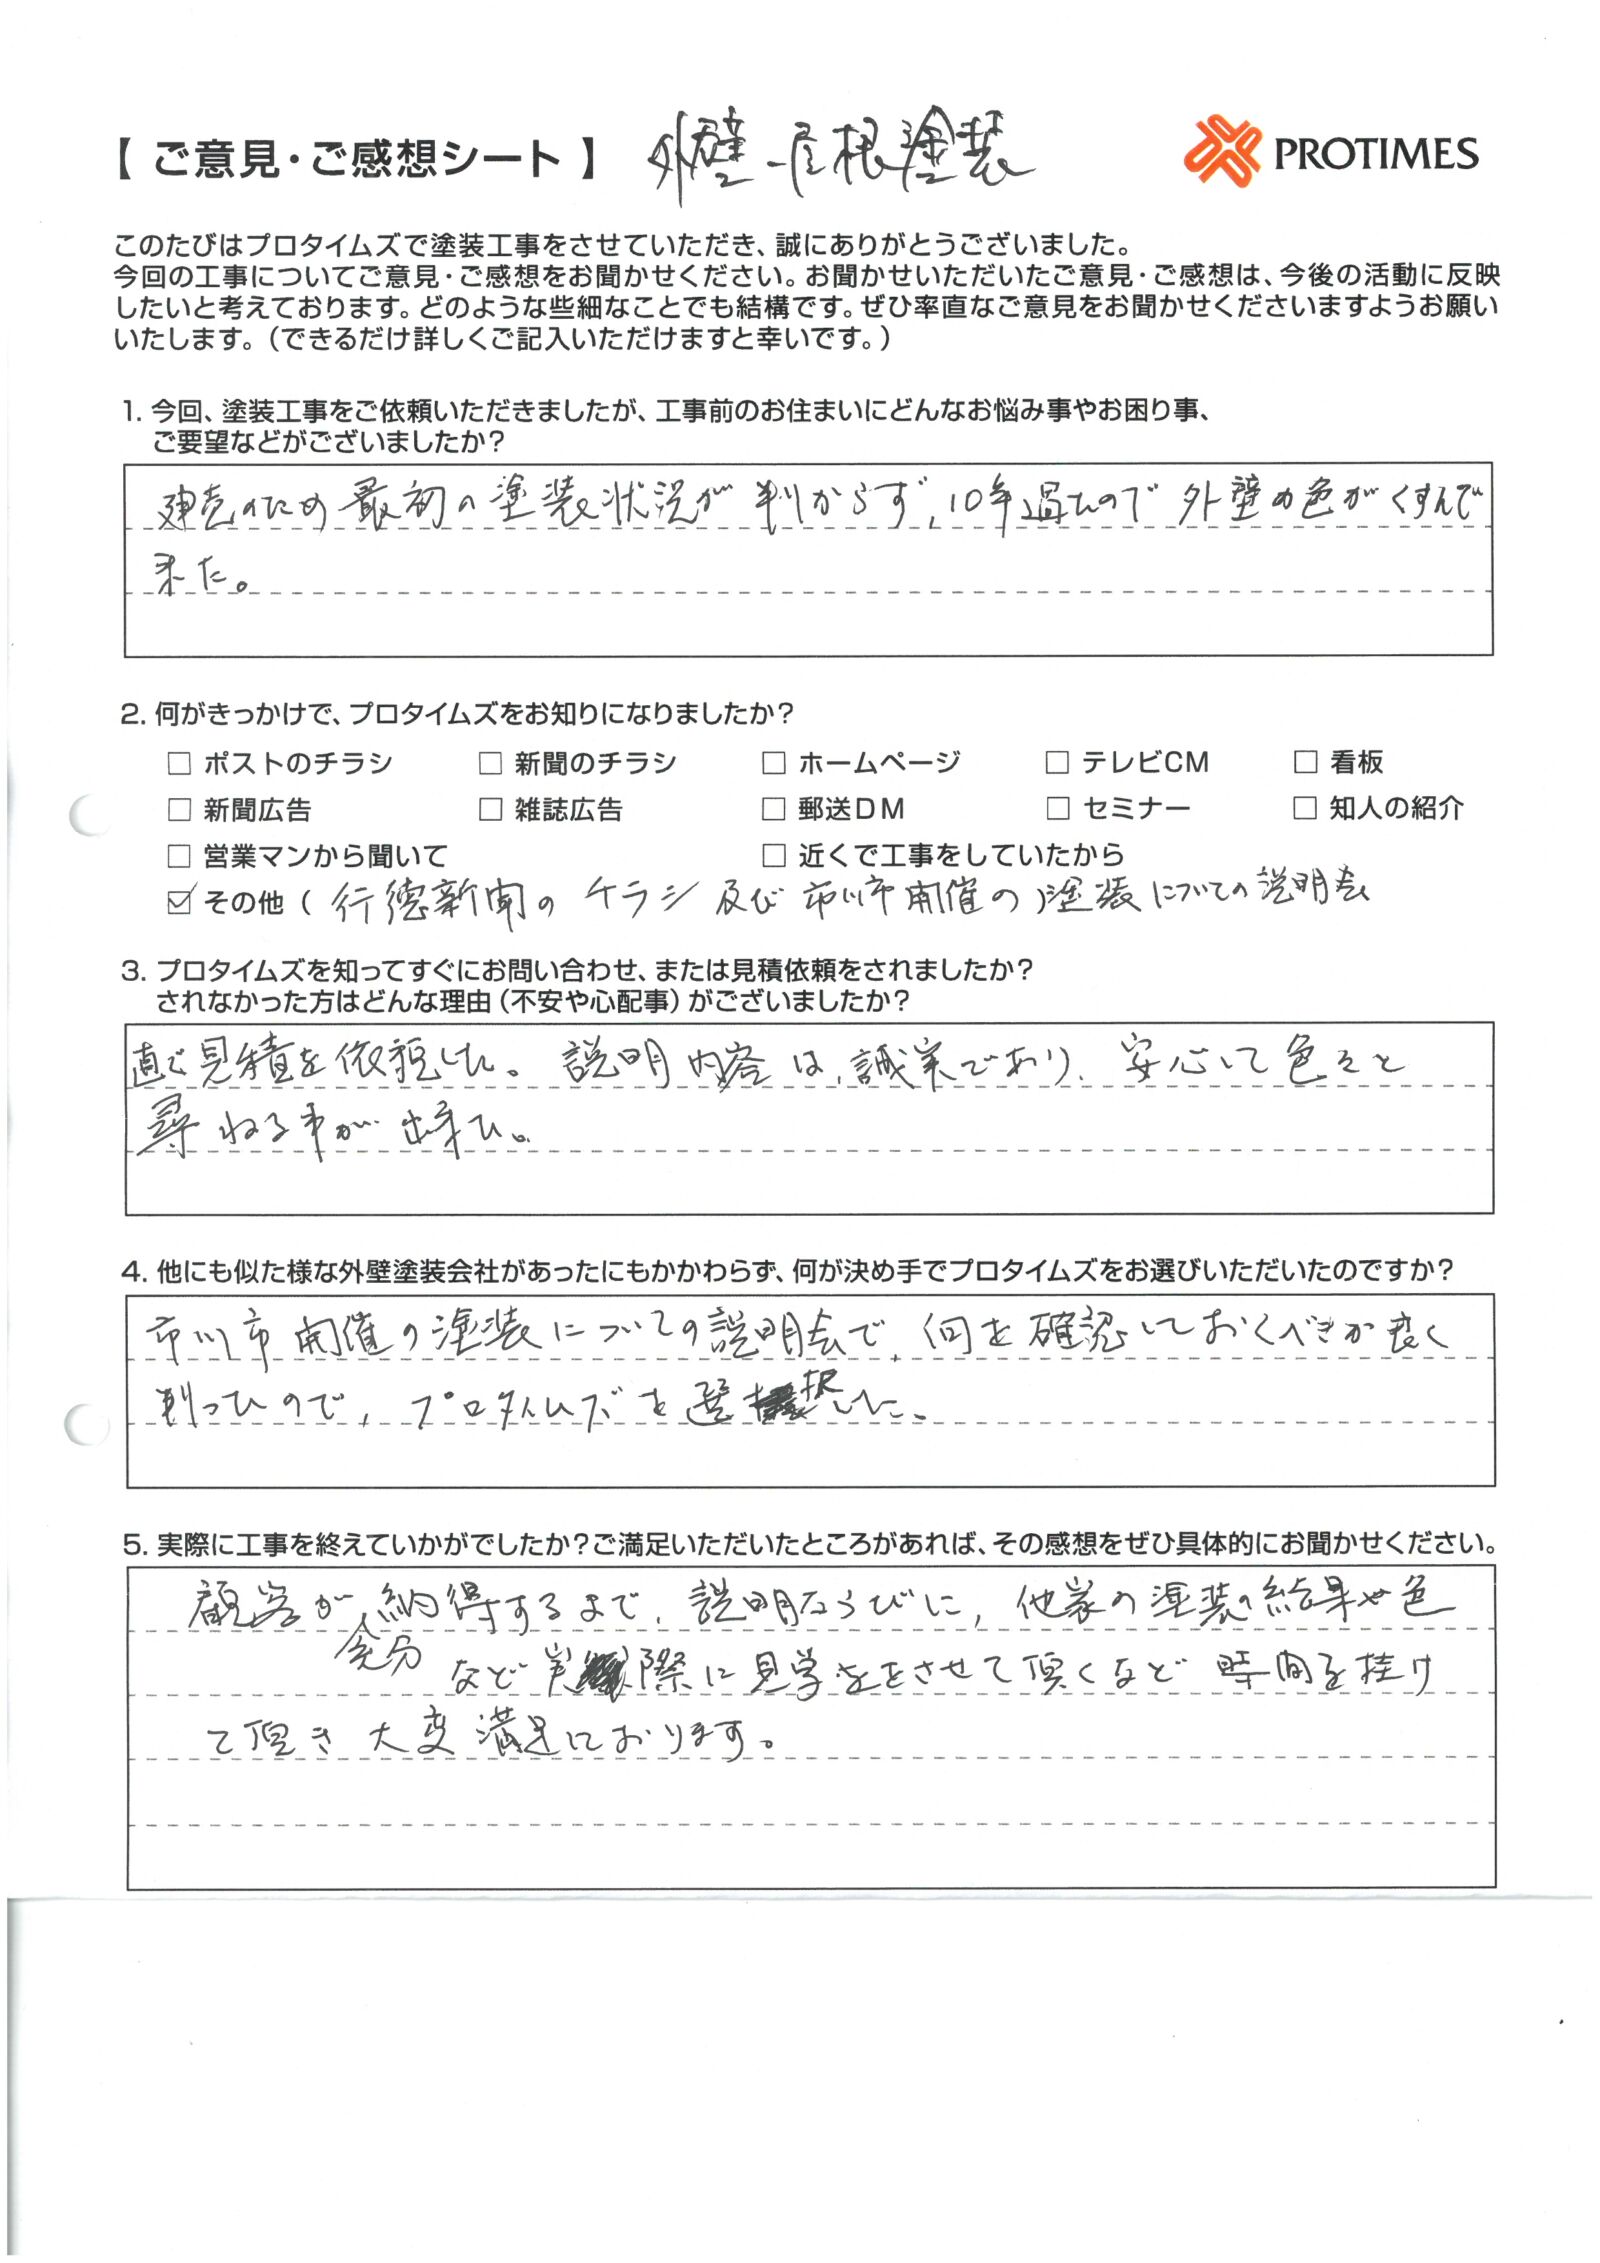 【 ご意見・ご感想シート 】 外壁・屋根塗装 PROTIMES
このたびはプロタイムズで塗装工事をさせていただき、誠にありがとうございました。
今回の工事についてご意見・ご感想をお聞かせください。お聞かせいただいたご意見・ご感想は、今後の活動に反映
したいと考えております。どのような些細なことでも結構です。ぜひ率直なご意見をお聞かせくださいますようお願い
いたします。（できるだけ詳しくご記入いただけますと幸いです。）
1. 今回、塗装工事をご依頼いただきましたが、工事前のお住まいにどんなお悩み事やお困り事、
ご要望などがございましたか？
建売のため最初の塗装状況が判からず、10年過たので外壁の色がくすんで
来た。
2. 何がきっかけで、プロタイムズをお知りになりましたか？
□ ポストのチラシ □ 新聞のチラシ □ ホームページ □ テレビCM □ 看板
□ 新聞広告 □ 雑誌広告 □ 郵送DM □ セミナー □ 知人の紹介
□ 営業マンから聞いて □ 近くで工事をしていたから
☑ その他（行徳新聞のチラシ及び市川市開催の）塗装についての説明会
3. プロタイムズを知ってすぐにお問い合わせ、または見積依頼をされましたか？
されなかった方はどんな理由（不安や心配事）がございましたか？
直で見積を依頼した。説明内容は、誠実であり、安心して色々と
尋ねる事が出来た。
4. 他にも似た様な外壁塗装会社があったにもかかわらず、何が決め手でプロタイムズをお選びいただいたのですか？
市川市開催の塗装についての説明会で、何を確認しておくべきか良く
判ったので、プロタイムズを選択した。
5. 実際に工事を終えていかがでしたか？ご満足いただいたところがあれば、その感想をぜひ具体的にお聞かせください。
顧客が納得するまで、説明ならびに、他家の塗装の結果や色
充分 など実際に見学をさせて頂くなど時間を掛け
て頂き大変満足しております。